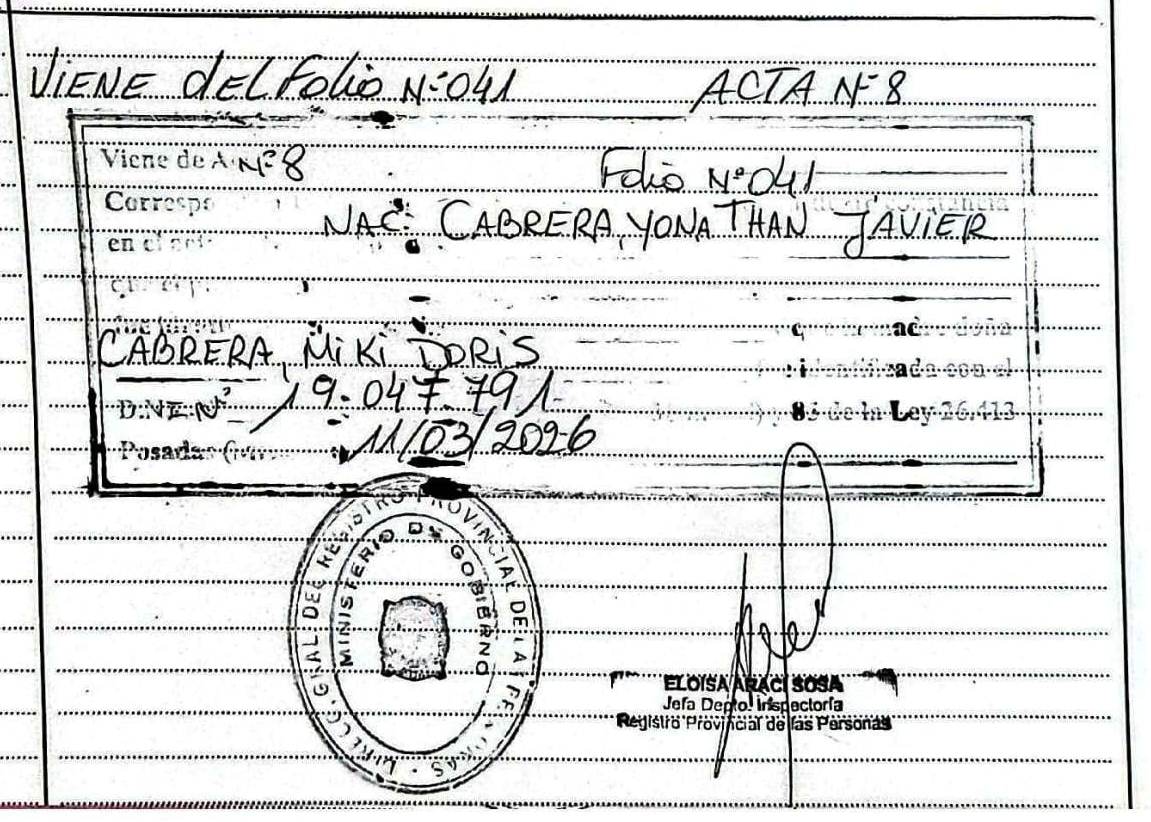 VIENE dEL Folio N:041 ACTA N-8
Viene de A N° 8 Folio N°041
Correspo constancia
NAC: CABRERA, YONATHAN JAVIER
en el
madre doña
CABRERA, MIKI DORIS
identificada con el
D.N N° 19.047.791 83 de la Ley 26.413
Posadas 11/03/2026
DIRECC. GRAL. DEL REGISTRO PROVINCIAL DE LAS PERSONAS
MINISTERIO DE GOBIERNO
ELOISA ARACI SOSA
Jefa Depto. Inspectoría
Registro Provincial de las Personas